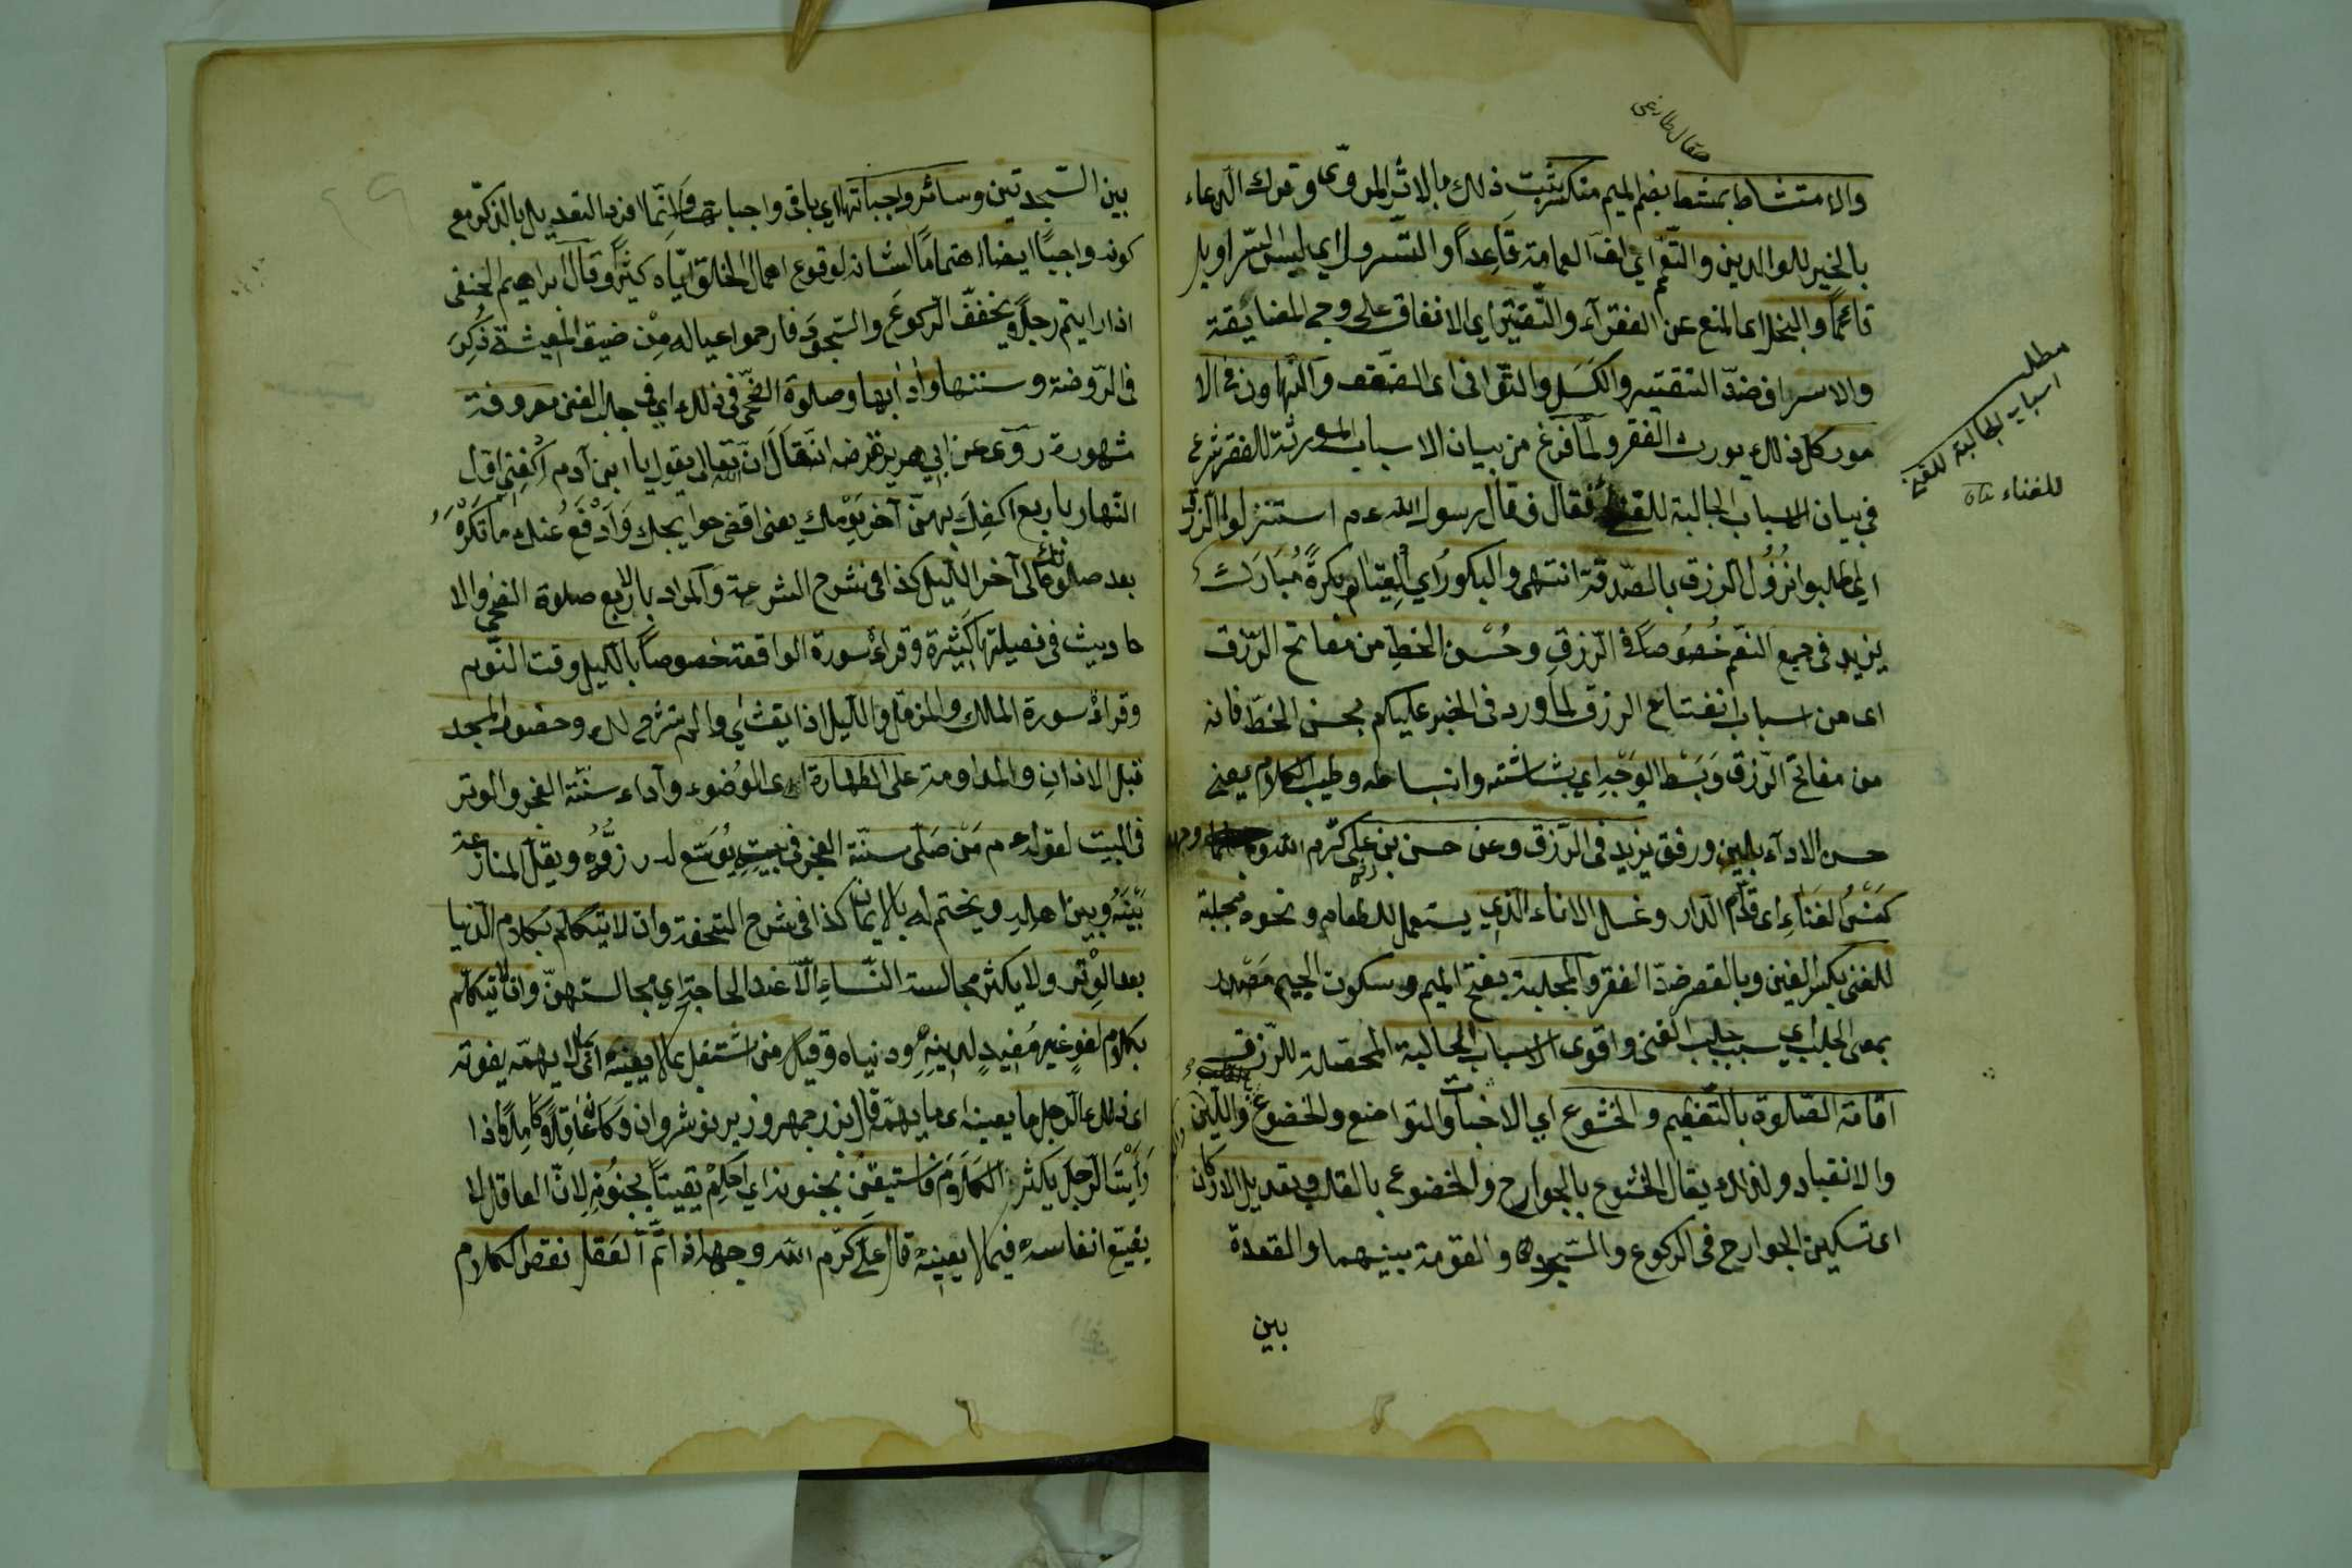 صقال طارغى
والامتشاط بمشط بضم الميم منكسر ثبت ذلك بالاثر المروى وترك الدعاء
بالخير للوالدين والتعمم اى لف العمامة قاعدا والتسرول اى لبس السراويل
قائما والبخل اى المنع عن الفقرآء والتقتير اى الانفاق على وجه المضايقة
والاسراف ضد التقتير والكسل والتوانى اى الضعف والتهاون فى الا
مور كل ذلك يورث الفقر ولما فرغ من بيان الاسباب المورثة للفقر شرع
فى بيان الاسباب الجالبة للغنى فقال وقال رسول الله عم استنزلوا الرزق
اى اطلبوا نزول الرزق بالصدقة انتهى والبكور اى القيام بكرة مبارك
يزيد فى جميع النعم خصوصا فى الرزق وحسن الخط من مفاتح الرزق
اى من اسباب انفتاح الرزق لما ورد فى الخبر عليكم بحسن الخط فانه
من مفاتح الرزق وبسط الوجه اى بشاشته وانبساطه وطيب الكلام يعنى
حسن الاداء بلين ورفق يزيد فى الرزق وعن حسن بن على كرم الله وجهه
كنس الفناء اى قدام الدار وغسل الاناء الذى يستعمل للطعام ونحوه مجلبة
للغنى بكسر الغين وبالقصر ضد الفقر والمجلبة بفتح الميم وسكون الجيم مصدر
بمعنى الجلب اى سبب جلب الغنى واقوى الاسباب الجالبة المحصلة للرزق
اقامة الصلوة بالتعظيم والخشوع اى الاخبات والتواضع والخضوع اى اللين
والانقياد ولذلك يقال الخشوع بالجوارح والخضوع بالقلب وتعديل الاركان
اى تسكين الجوارح فى الركوع والسجود والقومة بينهما والقعدة
بين
مطلب
اسباب الجالبة للغنى
للغناء
بين السجدتين وسائر واجباتها اى باقى واجباتها وانما افرد التعديل بالذكر مع
كونه واجبا ايضا اهتماما لشانه لوقوع اهمال الخلق اياه كثيرا وقال ابراهيم الحنفى
اذا رايتم رجلا يخفف الركوع والسجود فارحموا عياله من ضيق المعيشة ذكر
فى الروضة وسننها وادابها وصلوة الضحى فى ذلك اى فى جلب الغنى معروفة
مشهورة روى عن ابى هريرة رضه انه قال ان الله تعالى يقول يا ابن آدم اكفنى اول
النهار باربع اكفك بهن آخر يومك يعنى اقضى حوايجك وادفع عنك ما تكره
بعد صلوتك الى آخر الليل كذا فى شرح الشرعة والمراد بالاربع صلوة الضحى والا
حاديث فى فضيلتها كثيرة وقراءة سورة الواقعة خصوصا بالليل وقت النوم
وقراءة سورة الملك والمزمل والليل اذا يغشى والم نشرح لك وحضور المسجد
قبل الاذان والمداومة على الطهارة اى الوضوء وآداء سنة الفجر والوتر
فى البيت لقوله عم من صلى سنة الفجر فى بيته يوسع له رزقه ويقل المنازعة
بينه وبين اهله ويختم له بالايمان كذا فى شرح التحفة وان لا يتكلم بكلام الدنيا
بعد الوتر ولا يكثر مجالسة النساء الا عند الحاجة اى مجالستهن وان لا يتكلم
بكلام لغو غير مفيد لدينه ودنياه وقيل من اشتغل بما لا يعنيه اى لا يهمه يفوته
اى ذلك الرجل ما يعنيه اى ما يهمه قال بزرجمهر وزير نوشروان وكان عاقلا كاملا اذا
رايت الرجل يكثر الكلام فاستيقن بجنونه اى احكم يقينا بجنونه لان العاقل لا
يضيع انفاسه فيما لا يعنيه قال على كرم الله وجهه اذا تم العقل نقص الكلام